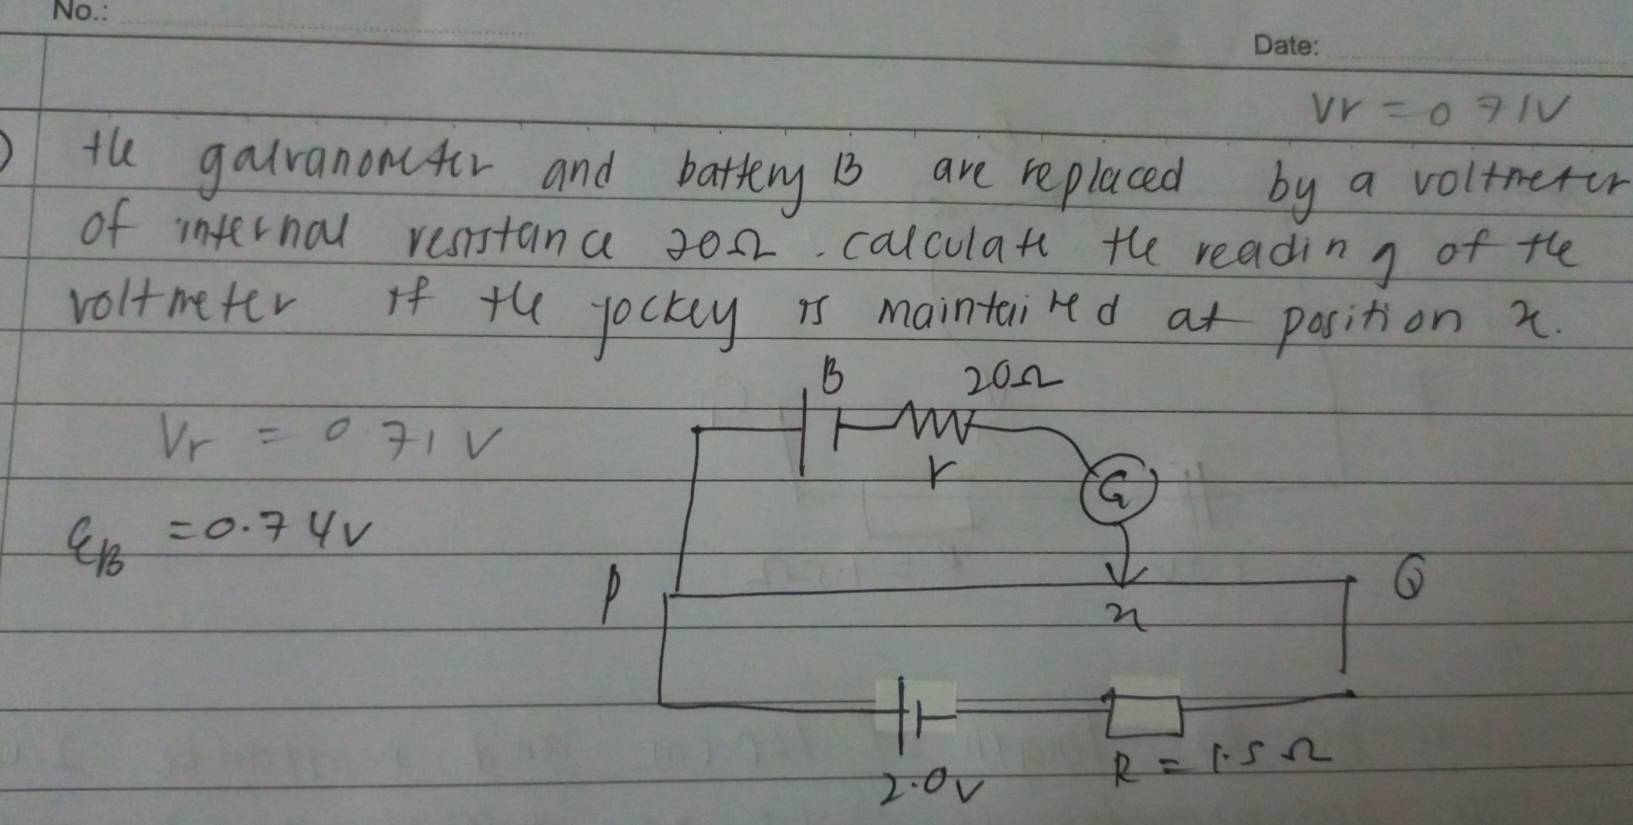 No.:
Date:
Vr = 0 71V
) the galvanometer and battery B are replaced by a voltmeter
of internal resistance 20Ω. calculate the reading of the
voltmeter if the jockey is maintained at position x.
B 20Ω
Vr = 0 71 V
r
G
εB = 0.74V
P Q
x
2.0V R = 1.5 Ω